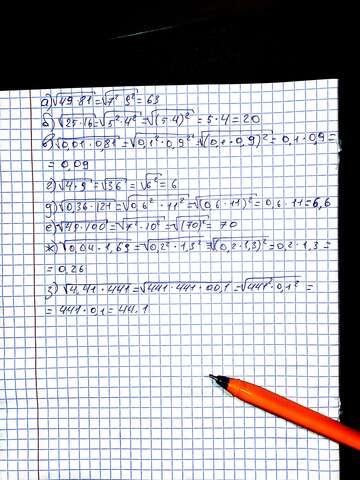 а) √49·81 = √7²·9² = 63
б) √25·16 = √5²·4² = √(5·4)² = 5·4 = 20
в) √0,01·0,81 = √0,1²·0,9² = √(0,1·0,9)² = 0,1·0,9 =
= 0,09
г) √4·9 = √36 = √6² = 6
д) √0,36·121 = √0,6²·11² = √(0,6·11)² = 0,6·11 = 6,6
е) √49·100 = √7²·10² = √(70)² = 70
ж) √0,04·1,69 = √0,2²·1,3² = √(0,2·1,3)² = 0,2·1,3 =
= 0,26
з) √4,41·441 = √441·441·00,1 = √441²·0,1² =
= 441·0,1 = 44.1